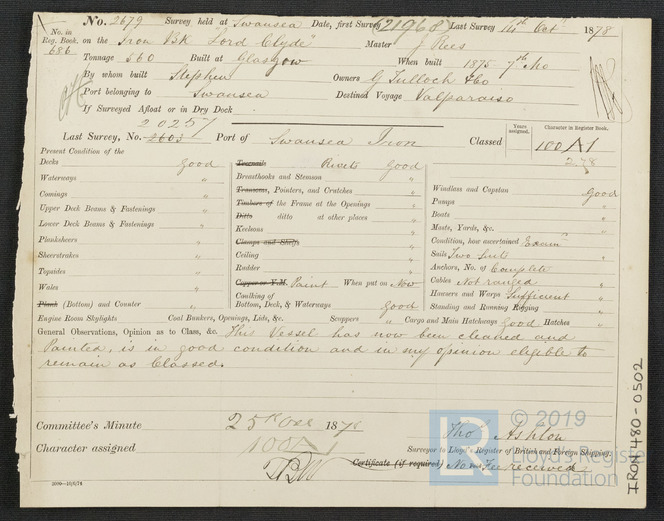 No. 2679 Survey held at Swansea Date, first Survey 21968 Last Survey 14th Oct 1878
No. in Reg. Book. 686 on the Iron Bk "Lord Clyde" Master J Rees
Tonnage 860 Built at Glasgow When built 1875 7th Mo
By whom built Stephen Owners G Tulloch & Co
Port belonging to Swansea Destined Voyage Valparaiso
If Surveyed Afloat or in Dry Dock
20257
Last Survey, No. 2603 Port of Swansea Iron Classed Years assigned. Character in Register Book. 100 A1
2.78
Present Condition of the
Decks good
Waterways "
Comings "
Upper Deck Beams & Fastenings "
Lower Deck Beams & Fastenings "
Plankshears "
Sheerstrakes "
Topsides "
Wales "
Plank (Bottom) and Counter "
Engine Room Skylights
Treenails Rivets good
Breasthooks and Stemson "
Transoms, Pointers, and Crutches "
Timbers of the Frame at the Openings "
Ditto ditto at other places "
Keelsons "
Clamps and Shelfs "
Ceiling "
Rudder "
Copper or Y.M. Paint When put on Now
Caulking of
Bottom, Deck, & Waterways good
Coal Bunkers, Openings, Lids, &c. Scuppers "
Windlass and Capstan good
Pumps "
Boats "
Masts, Yards, &c. "
Condition, how ascertained Examn
Sails Two Suits
Anchors, No. of Complete
Cables Not ranged
Hawsers and Warps Sufficient
Standing and Running Rigging "
Cargo and Main Hatchways good Hatches "
General Observations, Opinion as to Class, &c. This Vessel has now been cleaned and
Painted, is in good condition and in my opinion eligible to
remain as Classed.
Committee's Minute 25th Oct 1878
Character assigned 100A1
Tho Ashton
Surveyor to Lloyd's Register of British and Foreign Shipping.
Certificate (if required) No Fee received
IRON 480-0502
© 2019
LR
Lloyd's Register
Foundation